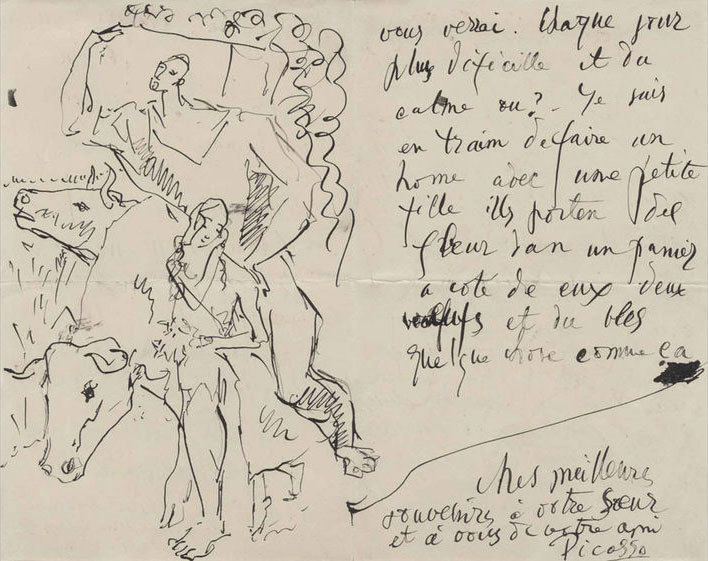 vous verrai. Chaque jour
plus dificille et du
calme ou? Je suis
en train de faire un
home avec une petite
fille ills porten des
fleur dan un panier
a coté de eux deux
et du bles
quelque chose comme ça
Mes meilleurs
souvenirs à votre sœur
et à vous de votre ami
Picasso